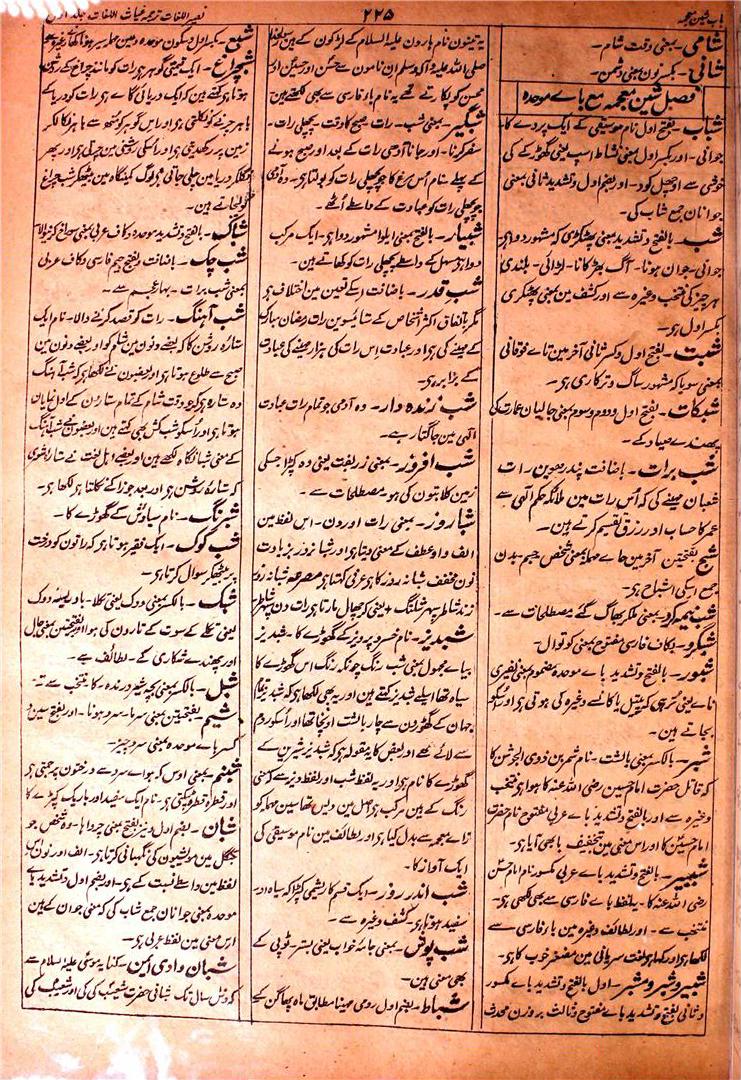 باب شین معجمہ
۲۲۵
نصیر اللغات ترجمہ غیاث اللغات جلد اول
شامی۔ بمعنی وقت شام۔
شانی۔ بکسر نون بمعنی دشمن۔
فصل شین معجمہ مع باے موحدہ
شباب۔ بفتح اول نام موسیقی کے ایک پردے کا۔
جوانی۔ اور بکسر اول بمعنی نشاط اسپ یعنی گھوڑے کی
خوشی سے اوچھل کود۔ اور بضم اول و تشدید ثانی بمعنی
جوانان جمع شاب کی۔
شب۔ بالفتح و تشدید بمعنی پھٹکری کہ مشہور دوا ہی۔
جوانی۔ جوان ہونا۔ آگ بھڑکانا۔ لڑائی۔ بلندی
ہر چیز کی منتخب وغیرہ سے اور کشف مین بمعنی پھٹکری
بکسر اول ہی۔
شبت۔ بفتح اول و کسر ثانی آخر مین تاے فوقانی
بمعنی سویا کہ مشہور ساگ و ترکاری ہی۔
شبکات۔ بفتح اول و دوم و سوم بمعنی جالیان عمارت کی
پھندے صیاد کے۔
شب برات۔ باضافت پندرھوین رات
شعبان مہینے کی کہ اُس رات مین ملائکہ حکم آلہی سے
عمر کا حساب اور رزق تقسیم کرتے ہین۔
شبح بفتحین آخر مین حاے مہملہ بمعنی شخص جسم بدن
جمع اسکی اشباح ہی۔
شبخیمہ کرد۔ بمعنی ملکر بھاگ گئے مصطلحات سے۔
شبگرد۔ بکاف فارسی مفتوح بمعنی کوتوال۔
شبور۔ بالفتح و تشدید باے موحدہ مضموم بمعنی نفیری
ناے یعنی تُرہی کہ پیتل یا کانسے وغیرہ کی ہوتی ہی اور اسکو
بجاتے ہین۔
شبر۔ بالکسر بمعنی بالشت۔ نام شمر بن ذوی الجوشن کا
کہ قاتل حضرت امام حسین رضی اللہ عنہ کا ہوا ہی منتخب
وغیرہ سے اور بالفتح و تشدید باے عربی مفتوح نام حضرت
امام حسن کا اور اس معنی مین بتخفیف با بھی آیا ہی۔
شبیر۔ بالفتح و تشدید باے عربی مکسور نام امام حسین
رضی اللہ عنہ کا۔ یہ لفظ باے فارسی سے بھی لکھی ہی۔
منتخب سے۔ اور لطائف وغیرہ مین باے فارسی سے
لکھا ہی اور کہا ہی لغت سریانی مین مصغر خوب کا ہی۔
شبیر و شبر و مشبر۔ اول بالفتح و تشدید باے مکسور
و ثانی بفتح و تشدید باے مفتوح و ثالث بروزن محدث
یہ تینون نام ہارون علیہ السلام کے لڑکون کے ہین رسول خدا
صلی اللہ علیہ و آلہ و سلم ان نامون سے حسن اور حسین اور
محسن کو پکارتے تھے یہ نام باے فارسی سے بھی لکھتے ہین
شبگیر۔ بمعنی شب۔ رات صبح کا وقت۔ پچھلی رات۔
سفر کرنا۔ اور جانا آدھی رات کے بعد اور صبح ہونے
کے پہلے۔ نام اُس مرغ کا جو پچھلی رات کو بولتا ہی۔ وہ آدمی
جو پچھلی رات کو عبادت کے واسطے اُٹھے۔
شبیار۔ بالفتح بمعنی ایلوا مشہور دوا ہی۔ ایک مرکب
دوا ہی مسہل کے واسطے پچھلی رات کو کھاتے ہین۔
شب قدر۔ باضافت اسکے تعین مین اختلاف ہی
مگر باتفاق اکثر اشخاص کے ستائیسوین رات رمضان مبارک
کے مہینے کی ہی اور عبادت اِس رات کی ہزار مہینے کی عبادت
کے برابر ہی۔
شب زندہ دار۔ وہ آدمی جو تمام رات عبادت
الٰہی مین جاگتا رہے۔
شب افروز۔ بمعنی زربفت یعنی وہ کپڑا جسکی
زمین کلابتون کی ہو مصطلحات سے۔
شباروز۔ بمعنی رات اور دن۔ اس لفظ مین
الف واو عطف کے معنی دیتا ہی اور شبانہ روز بزیادت
نون مخفف شبانہ روز کا ہی عرفی کہتا ہی مصرعہ شبانہ روز
زند شاطر سپہر شلنگ + یعنی کو چھال مارتا ہی رات دن شاطر سپہر
شبدیز۔ نام خسرو پرویز کے گھوڑے کا۔ شبدیز
بیاے مجہول بمعنی شب رنگ چونکہ رنگ اس گھوڑے کا
سیاہ تھا اسلیے شبدیز کہتے ہین اور یہ بھی لکھا ہی کہ شبدیز تمام
جہان کے گھوڑون سے چار بالشت اونچا تھا اور اُسکو روم
سے لائے تھے اور بعض کا یہ مقولہ ہی کہ شبدیز شیرین کے
گھوڑے کا نام ہی اور یہ لفظ شب اور لفظ دیز سے کہ معنی
رنگ کے ہین مرکب ہی اصل مین دیس تھا سین مہملہ کو
زاے معجمہ سے بدل کیا ہی اور لطائف مین نام موسیقی کی
ایک آواز کا۔
شب اندر روز۔ ایک قسم کا ریشمی کپڑا کہ سیاہ اور
سفید ہوتا ہی کشف وغیرہ سے۔
شب پوش۔ بمعنی جامۂ خواب یعنی بستر۔ ٹوپی کے
بھی معنی ہین۔
شباط۔ بضم اول رومی مہینا مطابق ماہ پھاگن کے
شبع۔ بکسر اول و سکون موحدہ و عین مہملہ سیر ہونا کھانے وغیرہ سے
شبچراغ۔ ایک قیمتی گوہر ہی رات کو مانند چراغ کے روشن
ہوتا ہی کہتے ہین کہ ایک دریائی گاے ہی رات کو دریا کے
باہر چرنے کو نکلتی ہی اور اس گوہر کو منہ سے باہر نکالکر
زمین پر رکھدیتی ہی اور اُسکی روشنی مین چرتی ہی اور پھر
نگلکر دریا مین چلی جاتی ہی لوگ کمینگاہ مین بیٹھکر شبچراغ
کو لیجاتے ہین۔
شباک۔ بالفتح و تشدید موحدہ و کاف عربی بمعنی سوراخ کرنیوالا
شب چک۔ باضافت و بفتح جیم فارسی و کاف عربی
بمعنی شب برات۔ بہار عجم سے۔
شب آہنگ۔ رات کو قصد کرنے والا۔ نام ایک
ستارہ روشن کا کہ بعضے دنون مین شام کو اور بعضے دنون مین
صبح سے طلوع ہوتا ہی اور بعضون نے لکھا ہی کہ شب آہنگ
وہ ستارہ ہی کہ جو وقت شام کے تمام ستارون کے اول نمایان
ہوتا ہی اور اُسکو شب کش بھی کہتے ہین اور بعضون نے شب آہنگ
کے معنی شبانگاہ لکھے ہین اور بعضے اہل لغت نے ستارہ شعری
کہ ستارہ روشن ہی اور بعد جوزا کے نکلتا ہی لکھا ہی۔
شبرنگ۔ نام سیاوش کے گھوڑے کا۔
شب کوک۔ ایک فقیر ہوتا ہی کہ راتون کو درخت
پر بیٹھکر سوال کرتا ہی۔
شبک۔ بالکسر بمعنی دوک یعنی تکلا۔ بادریسۂ دوک
یعنی تکلے کے سوت کے تارون کی ہوا اور بفتحتین بمعنی جال
اور پھندے شکاری کے۔ لطائف سے۔
شبل۔ بالکسر بمعنی بچہ شیر درندہ کا۔ منتخب سے۔
شبم۔ بفتحتین بمعنی سرما۔ سرد ہونا۔ اور بفتح شین و
کسر باے موحدہ بمعنی سرد چیز۔
شبنم۔ بمعنی اوس کہ ہواے سرد سے درختون پر جمتی ہی
اور قطرہ قطرہ ٹپکتی ہی۔ نام ایک سفید اور باریک کپڑے کا
شبان۔ بضم اول و نیز بفتح بمعنی چرواہا۔ وہ شخص جو
جنگل مین مواشیون کی نگہبانی کرتا ہی۔ الف اور نون اس
لفظ مین واسطے نسبت کے ہی۔ اور بضم اول و تشدید باے
موحدہ بمعنی جوانان جمع شاب کی کہ معنی جوان کے ہین
اس معنی مین لفظ عربی ہی۔
شبان وادی ایمن۔ کنایہ موسیٰ علیہ السلام سے
کہ دس سال تک شبانی حضرت شعیب کی کی اور شعیب کی